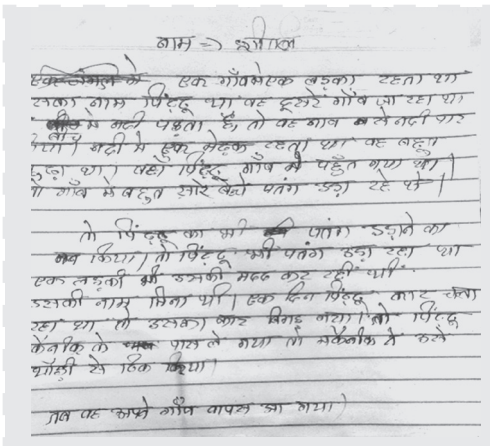 नाम => श्रीपाल
एक गाँव मे एक लड़का रहता था
उसका नाम पिंटू था वह दूसरे गाँव जा रहा था
बीच मे नदी पड़ता है। तो वह नाव से नदी पार
नदी मे एक मेढ़क रहता था वह बहुत
बुढ़ा था। वहाँ पिंटू गाँव मे पहुँच गया था।
गाँव मे बहुत सारे बच्चे पतंग उड़ा रहे थे।
तो पिंटू का भी पतंग उड़ाने का
मन किया। तो पिंटू भी पतंग उड़ा रहा था
एक लड़की भी उसकी मदद कर रही थी
उसकी नाम मिना थी। एक दिन पिंटू कार चला
रहा था तो उसका कार बिगड़ गया। तो पिंटू
कैनीक के पास ले गया तो मकैनीक ने उसे
ठिक किया।
तब वह अपने गाँव वापस आ गया।